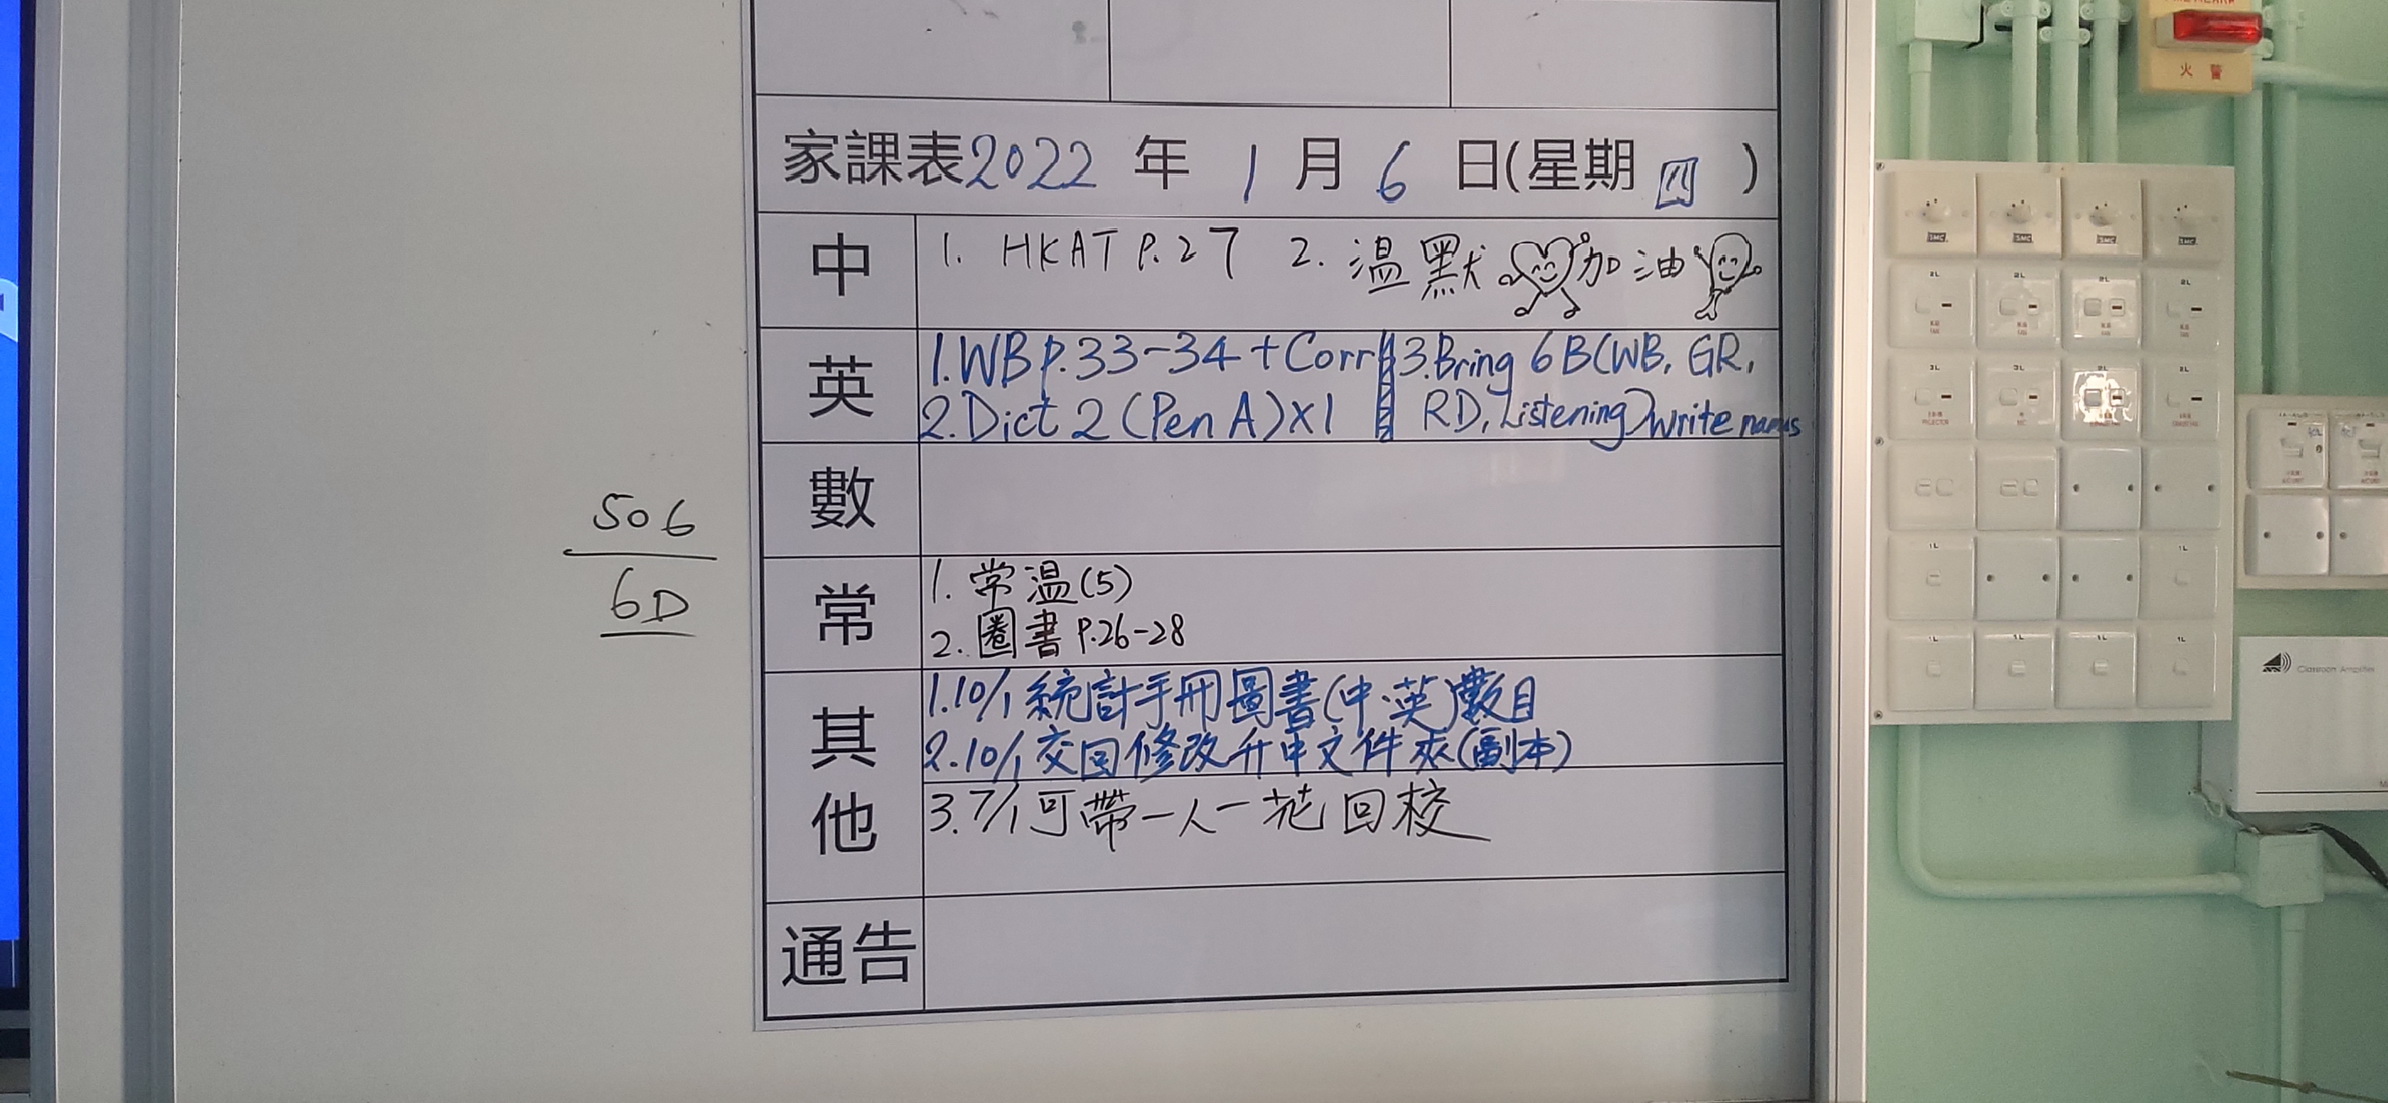 家課表2022年1月6日(星期四)
中
1. HKAT P.27 2. 溫默 加油
英
1.WB p.33-34 + Corr
2.Dict 2 (Pen A)×1
3.Bring 6B(WB, GR,
RD, Listening)write names
數
常
1. 常溫(5)
2. 圈書 P.26-28
其他
1.10/1 統計手冊圖書(中.英)數目
2.10/1 交回修改升中文件夾(副本)
3.7/1可帶一人一花回校
通告
506
6D
火警
Classroom Amplifier